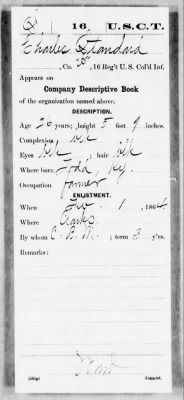 16 U.S.C.T.
Charles Standard
, Co. "B", 16 Reg't U. S. Col'd Inf.
Appears on
Company Descriptive Book
of the organization named above.
DESCRIPTION.
Age 26 years; height 5 feet 9 inches.
Complexion
Eyes blk, hair blk
Where born Todd, Ky.
Occupation farmer
ENLISTMENT.
When 1, 1864
Where
By whom C. B. M.; term 3 y'rs.
Remarks:
Copyist.